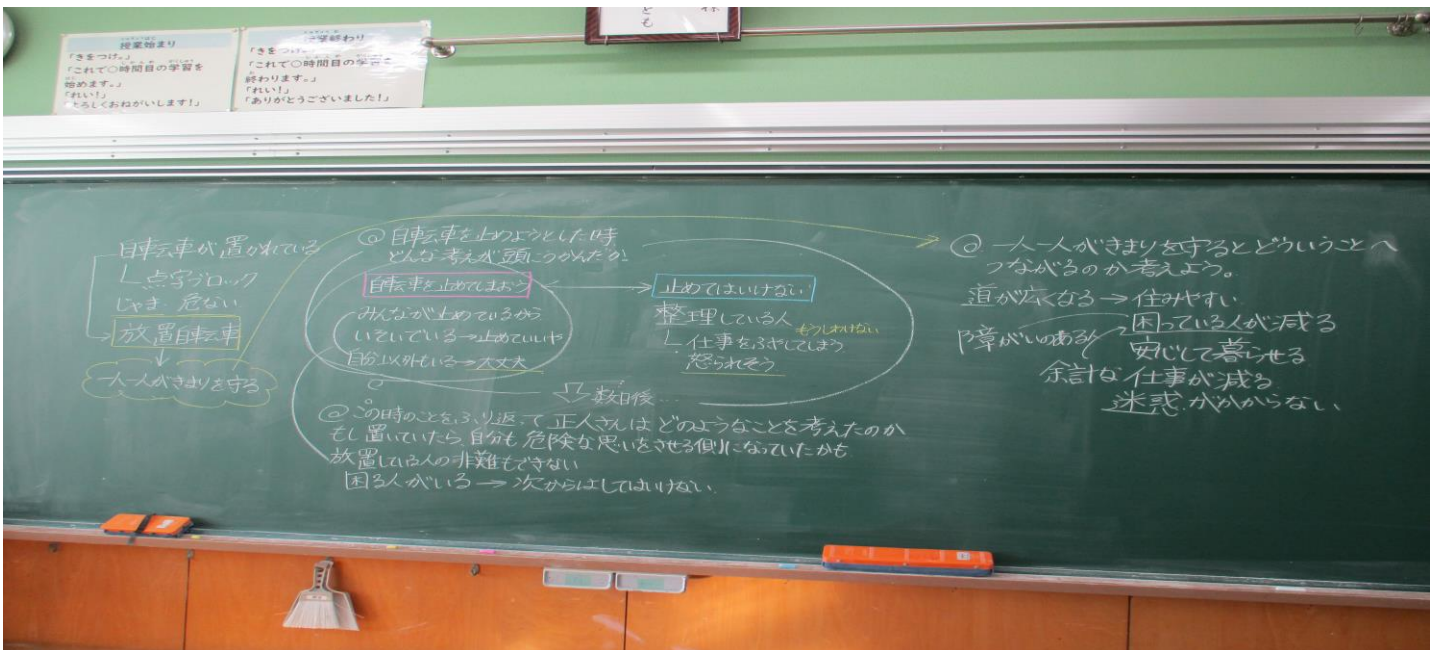 授業始まり
「きをつけ。」
「これで○時間目の学習を
始めます。」
「れい!」
「よろしくおねがいします!」
授業終わり
「きをつけ。」
「これで○時間目の学習を
終わります。」
「れい!」
「ありがとうございました!」
自転車が置かれている
点字ブロック
じゃま 危ない
放置自転車
一人一人がきまりを守る
◎自転車を止めようとした時
どんな考えが頭にうかんだか!
自転車を止めてしまおう
みんなが止めているから
いそいでいる→止めていいや
自分以外もいる→大丈夫
止めてはいけない
整理している人
もうしわけない
仕事をふやしてしまう
怒られそう
数日後…
◎この時のことをふり返って正人さんはどのようなことを考えたのか
もし置いていたら、自分も危険な思いをさせる側になっていたかも
放置している人の非難もできない
困る人がいる→次からはしてはいけない
◎一人一人がきまりを守るとどういうことへ
つながるのか考えよう。
道が広くなる→住みやすい
障がいのある人
困っている人が減る
安心して暮らせる
余計な仕事が減る
迷惑がかからない